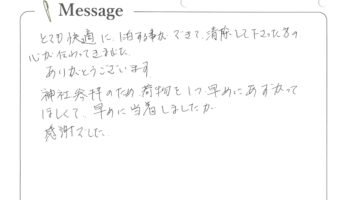 Message
とても快適に、泊る事ができて、清除して下さった方の
心が伝わってきました
ありがとうございます
神社参拝のため荷物を1つ早めにあずかって
ほしくて、早めに当着しましたが
感謝でした